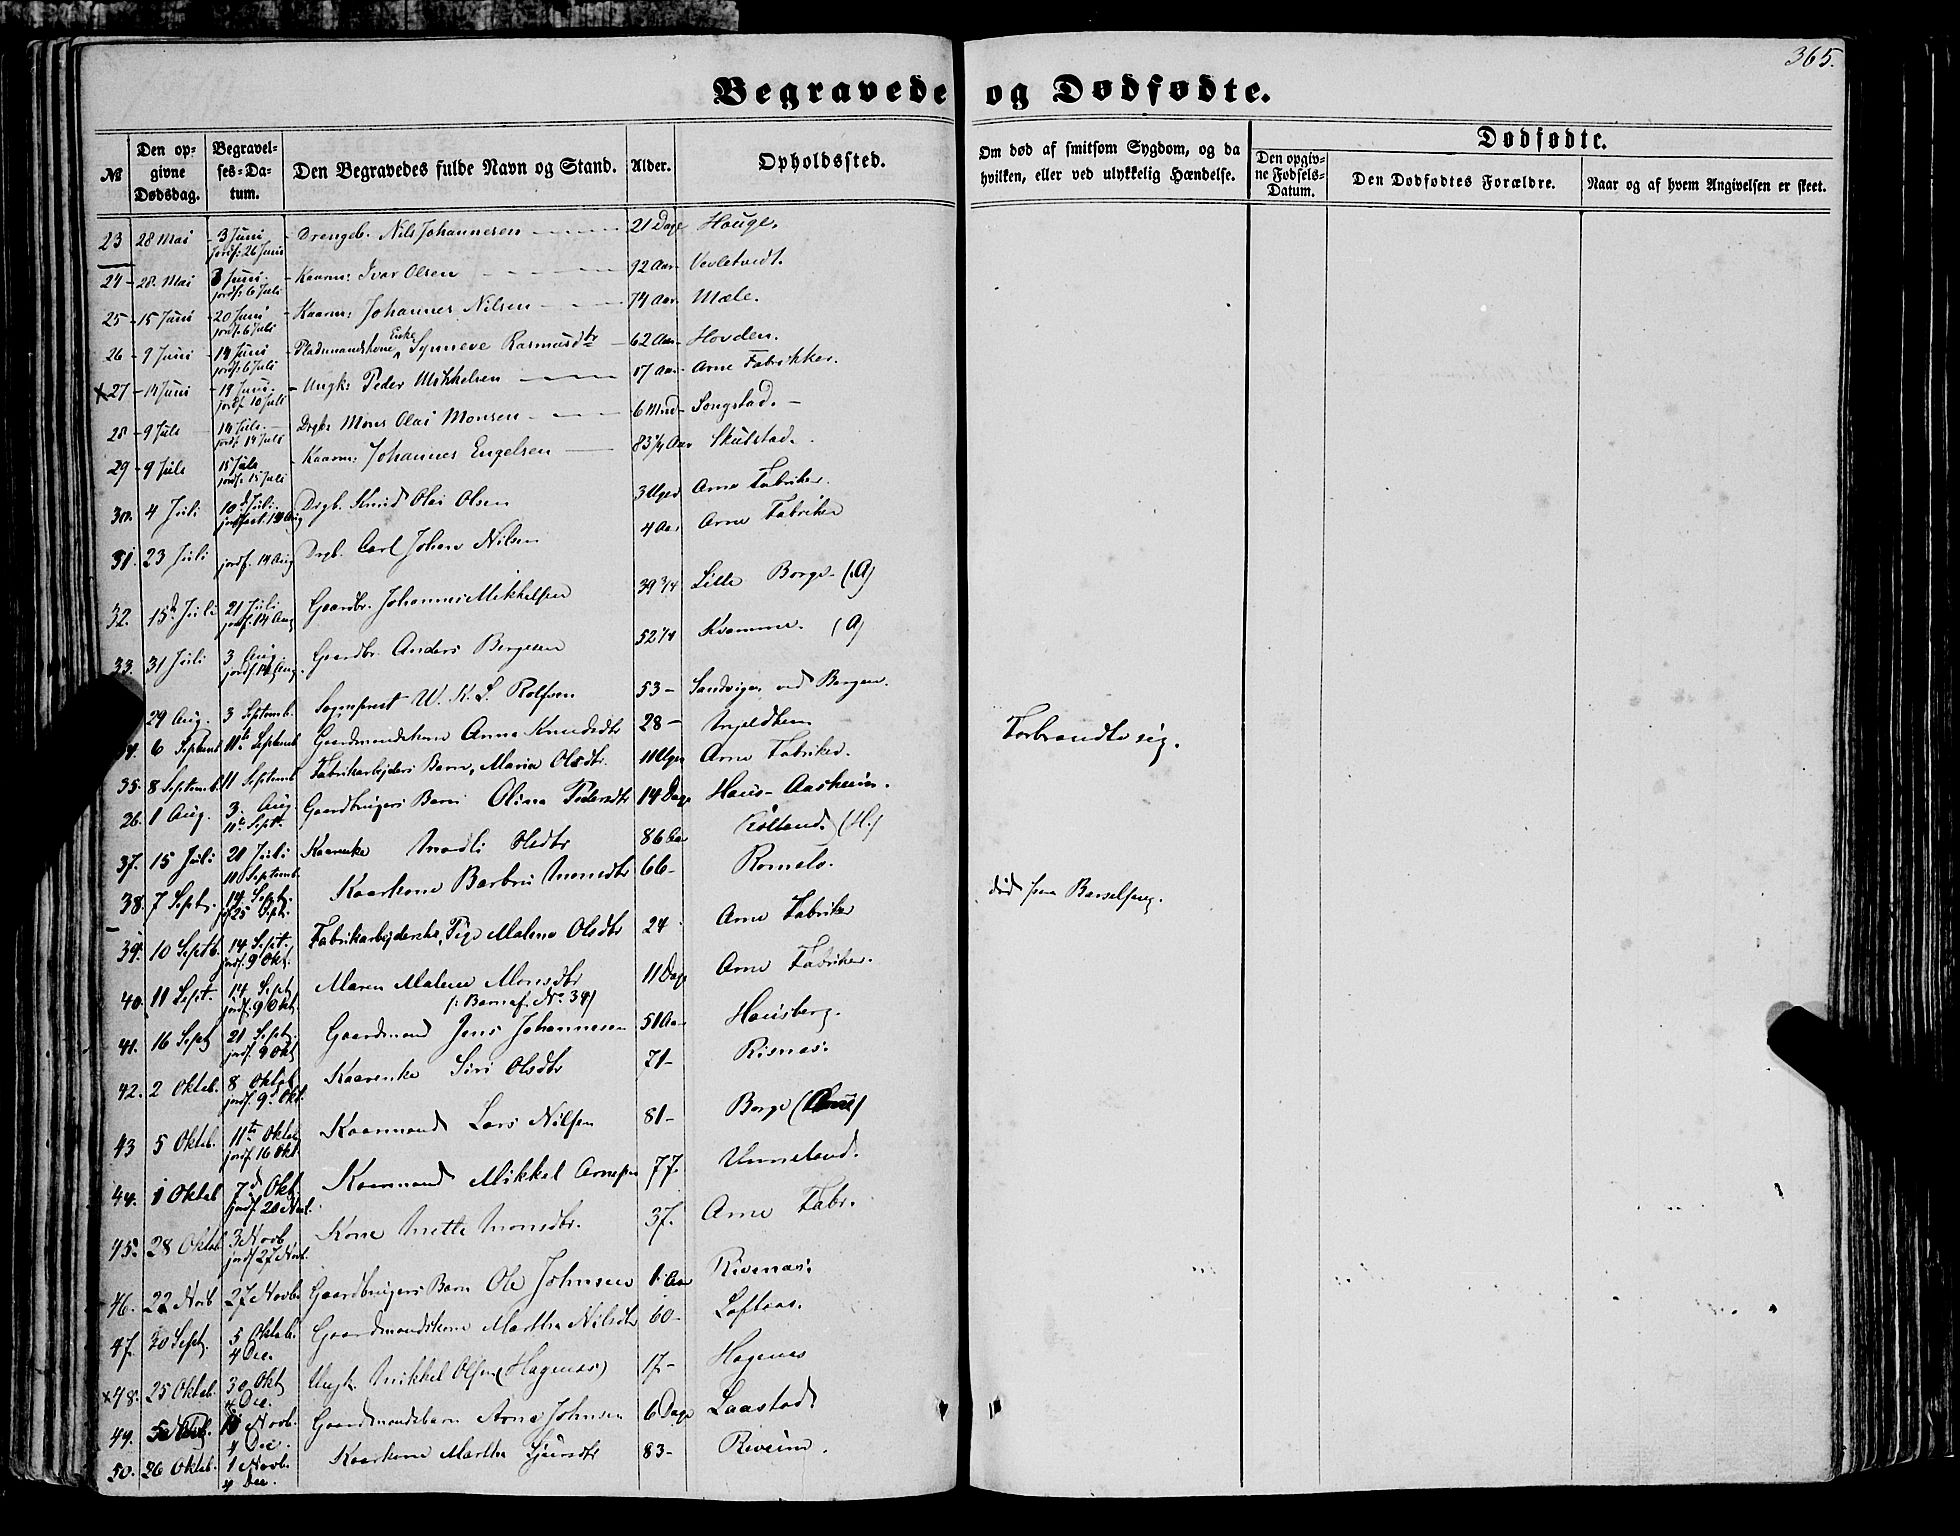 365.
Begravede og Dødfødte.
№ Den opgivne Dødsdag. Begravelses-Datum. Den Begravedes fulde Navn og Stand. Alder. Opholdssted. Om død af smitsom Sygdom, og da hvilken, eller ved ulykkelig Hændelse. Dødfødte. Den opgivne Fødsels-Datum. Den Dødfødtes Forældre. Naar og af hvem Angivelsen er skeet.
23 28 Mai 3 Juni jordf. 26 Juni Drengeb. Nils Johannesen 21 Dage Hauge.
24 28 Mai 8 Juni jordf. 6 Juli Kaarm: Ivar Olsen 92 Aar Vevletvedt.
25 15 Juni 20 Juni jordf. 6 Juli Kaarm: Johannes Nilsen 74 Aar Mæle.
26 9 Juni 14 Juni jordf. 6 Juli Pladsmandskone Enke Synneve Rasmusdtr 62 Aar Hovden.
x 27 14 Juni 19 Juni jordf. 10 Juli Ungk: Peder Mikkelsen 17 Aar Arne Fabrikker.
28 9 Juli 14 Juli jordf. 14 Juli Drgb: Mons Olai Monsen 6 Mnd Songstad.
29 9 Juli 15 Juli jordf. 15 Juli Kaarm: Johannes Engelsen 83 1/4 Aar Skulstad.
30. 4 Juli 10d Juli jordfest. 14 Aug Drgb. Knud Olai Olsen 3 Uger Arne Fabriker.
31. 23 Juli jordf. 14 Aug Drgb. Carl Johan Nilsen 4 Aar Arne Fabriker
32. 15d Juli 21 Juli jordf. 14 Aug Gaardbr. Johannes Mikkelsen 39 3/4 Lille Borge (A)
33. 31 Juli 3 Aug. jordf. 14 Aug. Gaardbr. Anders Børgesen 52 1/4 Kvamme. (A)
29 Aug. 3 Septemb. Sogneprest W. K. S. Rolfsen 53 Sandvigen ved Bergen.
34. 6 Septemb 11te Septemb Gaardmandskone Anna Knudsdtr 28 Mjeldheim Forbrændte sig.
35. 8 Septemb. 11 Septemb Fabrikarbejders Barn, Maria Olsdtr. 11 Uger Arne Fabriker.
26. 1 Aug. 3. Aug. 11te Sept. Gaardbrugers Barn Olina Pedersdtr 14 Dage Haus-Aasheim.
37. 15 Juli 21 Juli 11 Septemb. Kaarenke Madli Olsdtr 86 Aar (H.)
38. 7 Sept. 14 Sept. jf 25 Sept. Kaarkone Barbru Monsdtr 66 Romslo.
39. 10 Septb. 14 Sept. jordf. 9 Okt. Fabrikarbejderske, Pige Malena Olsdtr 24 Arne Fabriker død paa Barselseng.
40. 11 Sept. 14 Sept. jordf. 9 Okt. Maren Malene Monsdtr (: Barn af No 39) 11 Dage Arne Fabriker.
41. 16 Sept 21 Sept. jordf. 9 Okt Gaardmand Jens Johannesen 51 Aar Hausberg.
42. 2 Oktob. 8 Oktob jordf. 9d Okt. Kaarenke Siri Olsdtr 71 Risnæs.
43 5 Oktob. 11te Oktob jordf. 16 Okt. Kaarmand Lars Nilsen 81 Borge (Arne)
44. 1 Oktob 7d Okt. jordf. 20 Nov. Kaarmand Mikkel Arnesen 77. Unneland.
45. 28 Oktob 3 Novb jordf 27 Novb. Kone Mette Monsdtr. 37. Arne Fabr.
46. 22 Novb 27 Novb. Gaardbrugers Barn Ole Johnsen 1 Aar Rivenæs.
47. 30 Sept. 5 Oktob. 4 Dec. Gaardmandskone Martha Nilsdtr 60 Loftaas.
x 48. 25 Oktob. 30 Okt 4 Dec. Ungk. Mikkel Olsen (Hagenæs) 17 Hagenæs
49. Novb. 4 Dec. Gaardmandsbarn Arne Johnsen 6 Dage Laastad
50. 26 Oktob. 1 Novb. 4 Dec. Kaarkone Martha Sjursdtr 83